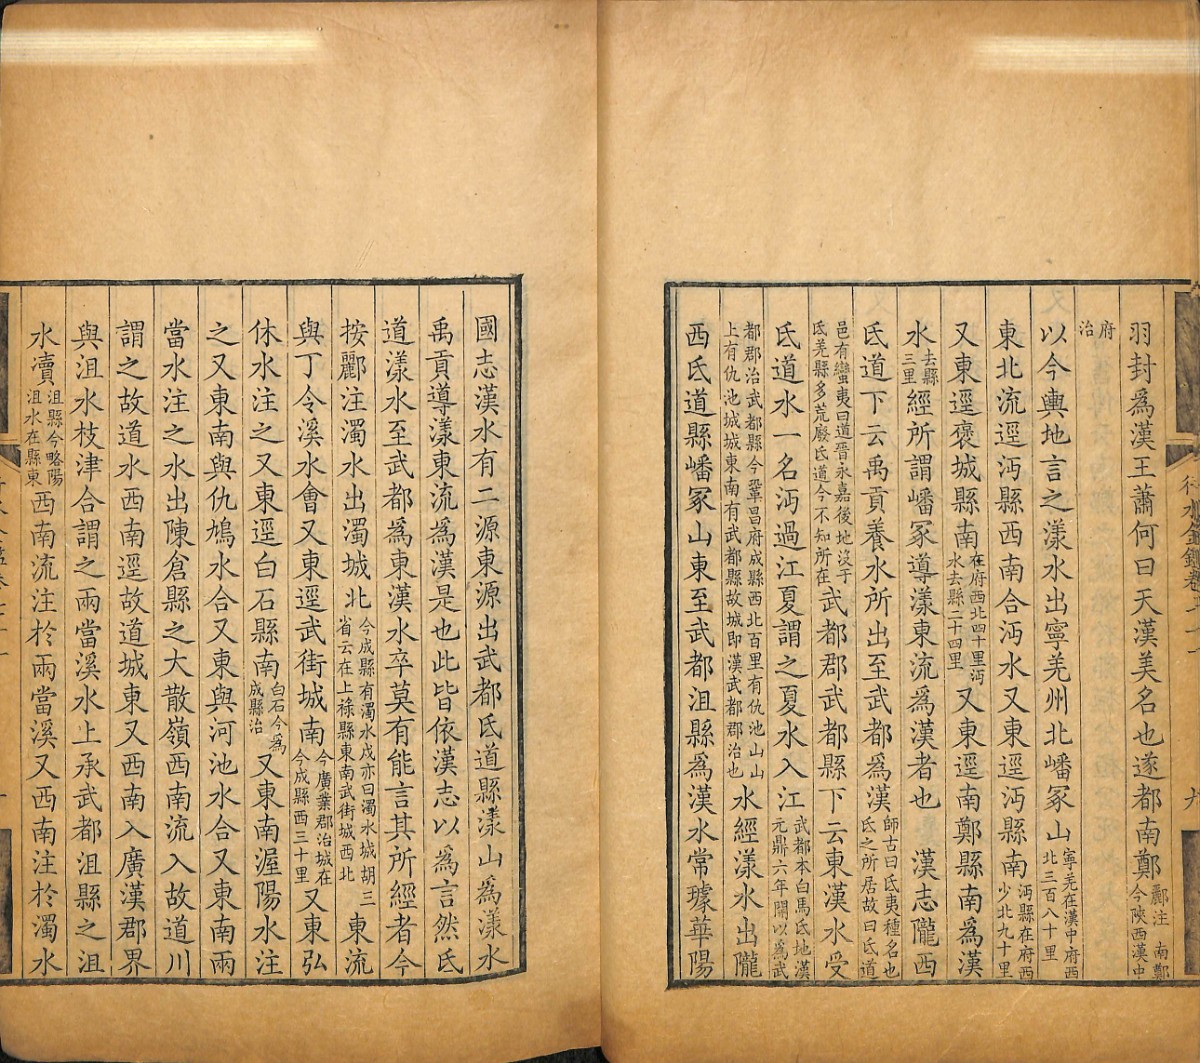 羽封為漢王蕭何曰天漢美名也遂都南鄭酈注南鄭今陝西漢中
府治
以今輿地言之漾水出寧羌州北嶓冢山寧羌在漢中府西北三百八十里
東北流逕沔縣西南合沔水又東逕沔縣南沔縣在府西少北九十里
又東逕褒城縣南在府西北四十里沔水去縣二十四里又東逕南鄭縣南為漢
水去縣三里經所謂嶓冢導漾東流為漢者也漢志隴西
氐道下云禹貢養水所出至武都為漢師古曰氐夷種名也氐之所居故曰氐道
邑有蠻夷曰道晉永嘉後地沒于氐羌縣多荒廢氐道今不知所在武都郡武都縣下云東漢水受
氐道水一名沔過江夏謂之夏水入江武都本白馬氐地漢元鼎六年開以為武
都郡治武都縣今鞏昌府成縣西北百里有仇池山山上有仇池城城東南有武都縣故城即漢武都郡治也水經漾水出隴
西氐道縣嶓冢山東至武都沮縣為漢水常璩華陽
國志漢水有二源東源出武都氐道縣漾山為漾水
禹貢導漾東流為漢是也此皆依漢志以為言然氐
道漾水至武都為東漢水卒莫有能言其所經者今
按酈注濁水出濁城北今成縣有濁水戍亦曰濁水城胡三省云在上祿縣東南武街城西北東流
與丁令溪水會又東逕武街城南今廣業郡治城在今成縣西三十里又東弘
休水注之又東逕白石縣南白石今為成縣治又東南渥陽水注
之又東南與仇鳩水合又東與河池水合又東南兩
當水注之水出陳倉縣之大散嶺西南流入故道川
謂之故道水西南逕故道城東又西南入廣漢郡界
與沮水枝津合謂之兩當溪水上承武都沮縣之沮
水瀆沮縣今略陽沮水在縣東西南流注於兩當溪又西南注於濁水
行水金鑑卷